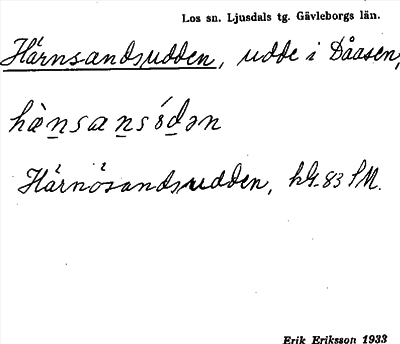 Los sn. Ljusdals tg. Gävleborgs län.
Härnsandsudden, udde i Dåasen,
hæ̀n̲san̲só̲d̲ən
Härnösandsudden, hk. 83 SM.
Erik Eriksson 1933